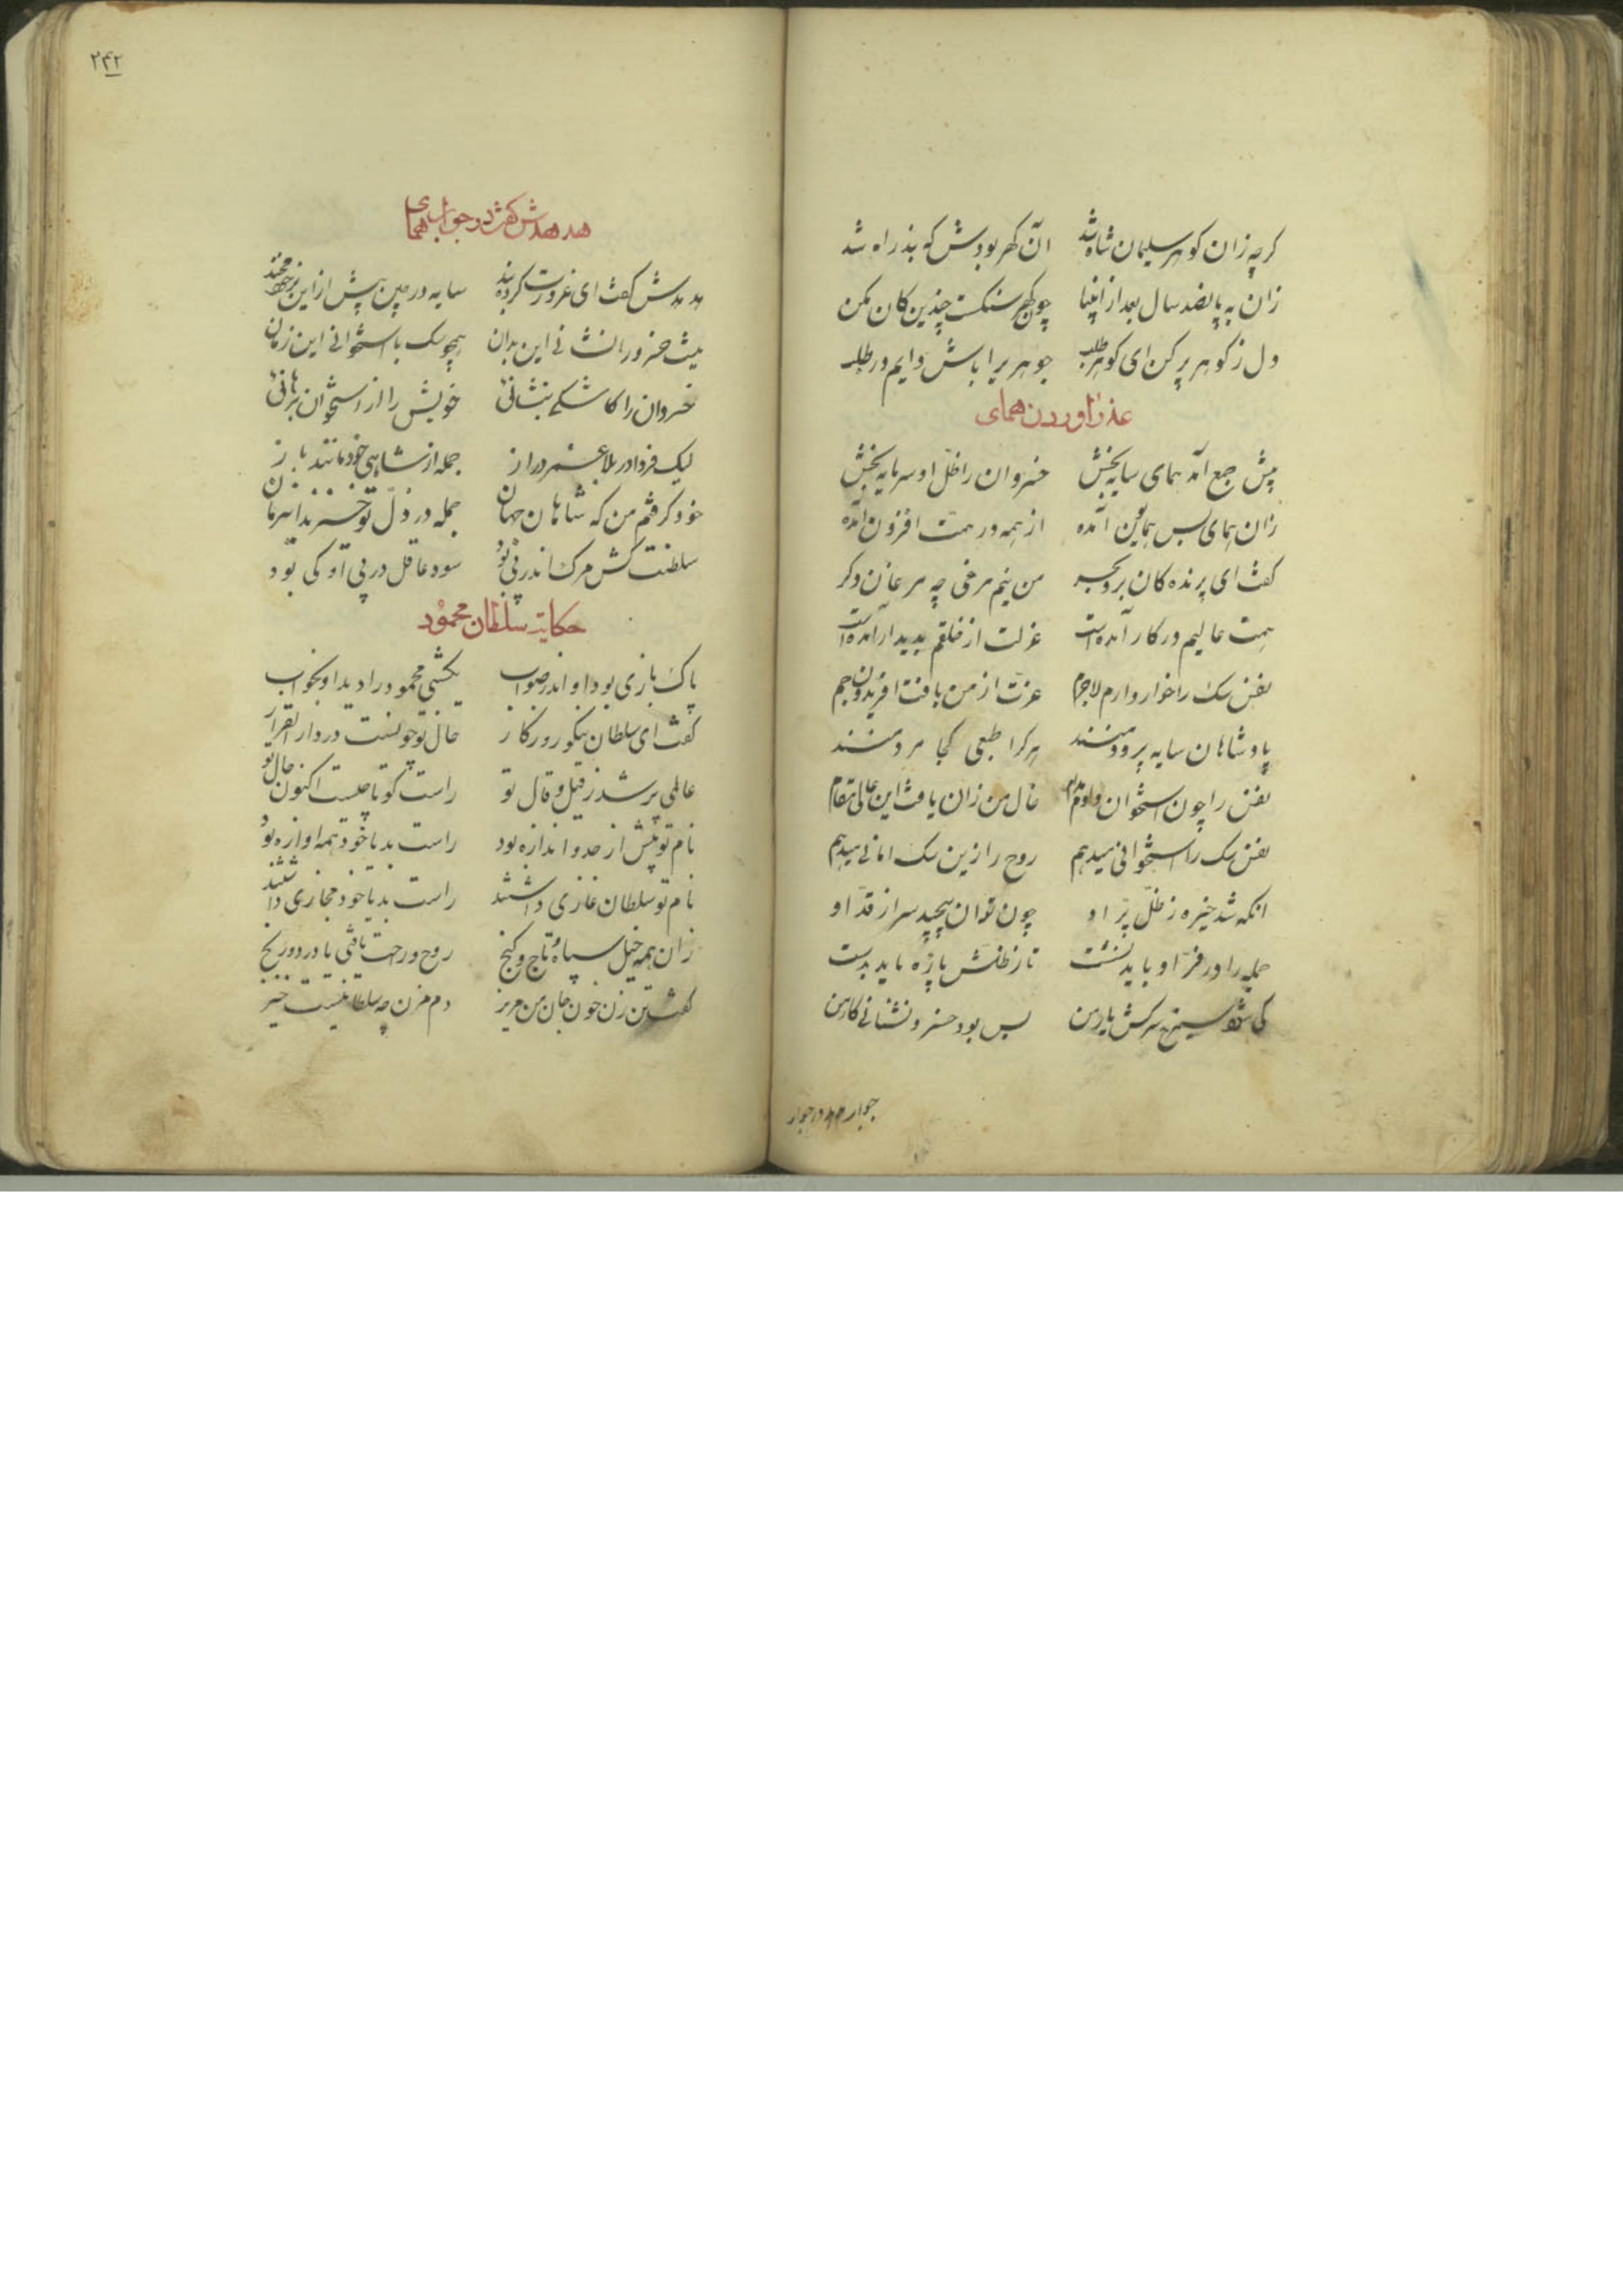 کرچه زان کوهر سلیمان شاه شد آن کهر بودش که بند راه شد
زان به پانصد سال بعد از انبیا
دل ز کوهر بر کن ای کوهر طلب جوهری را باش دایم در طلب
عذر آوردن همای
پیش جمع آمد همای سایه بخش خسروان را ظلّ او سرمایه بخش
زان همای بس همایون آمده از همه در همّت افزون آمده
کفت ای پرنده کان بحر و بر من نیم مرغی چه مرغان دکر
همت عالیم در کار آمده است عزلت از خلقم پدیدار آمده است
نفس سک را خوار دارم لاجرم عزّت از من یافت افریدون و جم
پادشاهان سایه پرورد منند هر کدا طبعی کجا مرد منند
نفس را چون استخوان دادم مدام حال من زان یافت این عالی مقام
نفس سک را استخوانی میدهم روح را زین سک امانی میدهم
انکه شد خیره ز ظلّ پرّ او چون توان پیچید سر از قدّ او
جمله را در فرّ او باید نشست تا ز ظلّش پارّه ماید بدست
کی شود سیمرغ سرکش یار من بس بود خسرو نشانی کار من
۲۴۲
هدهدش کفت در جواب همای
هدهدش کفت ای غرورت کرده بند سایه در چین پیش از این بر خود مخند
نیست خسرو را نشانی این بدان همچو سک با استخوانی این زمان
خسروان را کاشکی ننشانئی خویش را از استخوان برهانئی
لیک فردا در بلا عمر دراز جمله از شاهی خود مانند باز
خود کرفتم من که شاهان جهان جمله در ذلّ تو خسبند این زمان
سلطنت کش مرک اندر پی بود سود عاقل در پی او کی بود
حکایت سلطان محمود
پاک بازی بود او اندر صواب یکشبی محمود را دید او بخواب
کفت ای سلطان نیکو روزکار حال تو چونست در دار القرار
عالمی پر شد ز قیل و قال تو راست کو تا چیست اکنون حال تو
نام تو بیش از حد و اندازه بود راست بد یا خود همه اوازه بود
نام تو سلطان غازی داشتند راست بد یا خود مجازی داشتند
زان همه خیل و سپاه و تاج و کنج روح و راحت یافتی یا درد و رنج
کفت تن زن خون جان من مریز دم مزن چه سلطانیست خیز